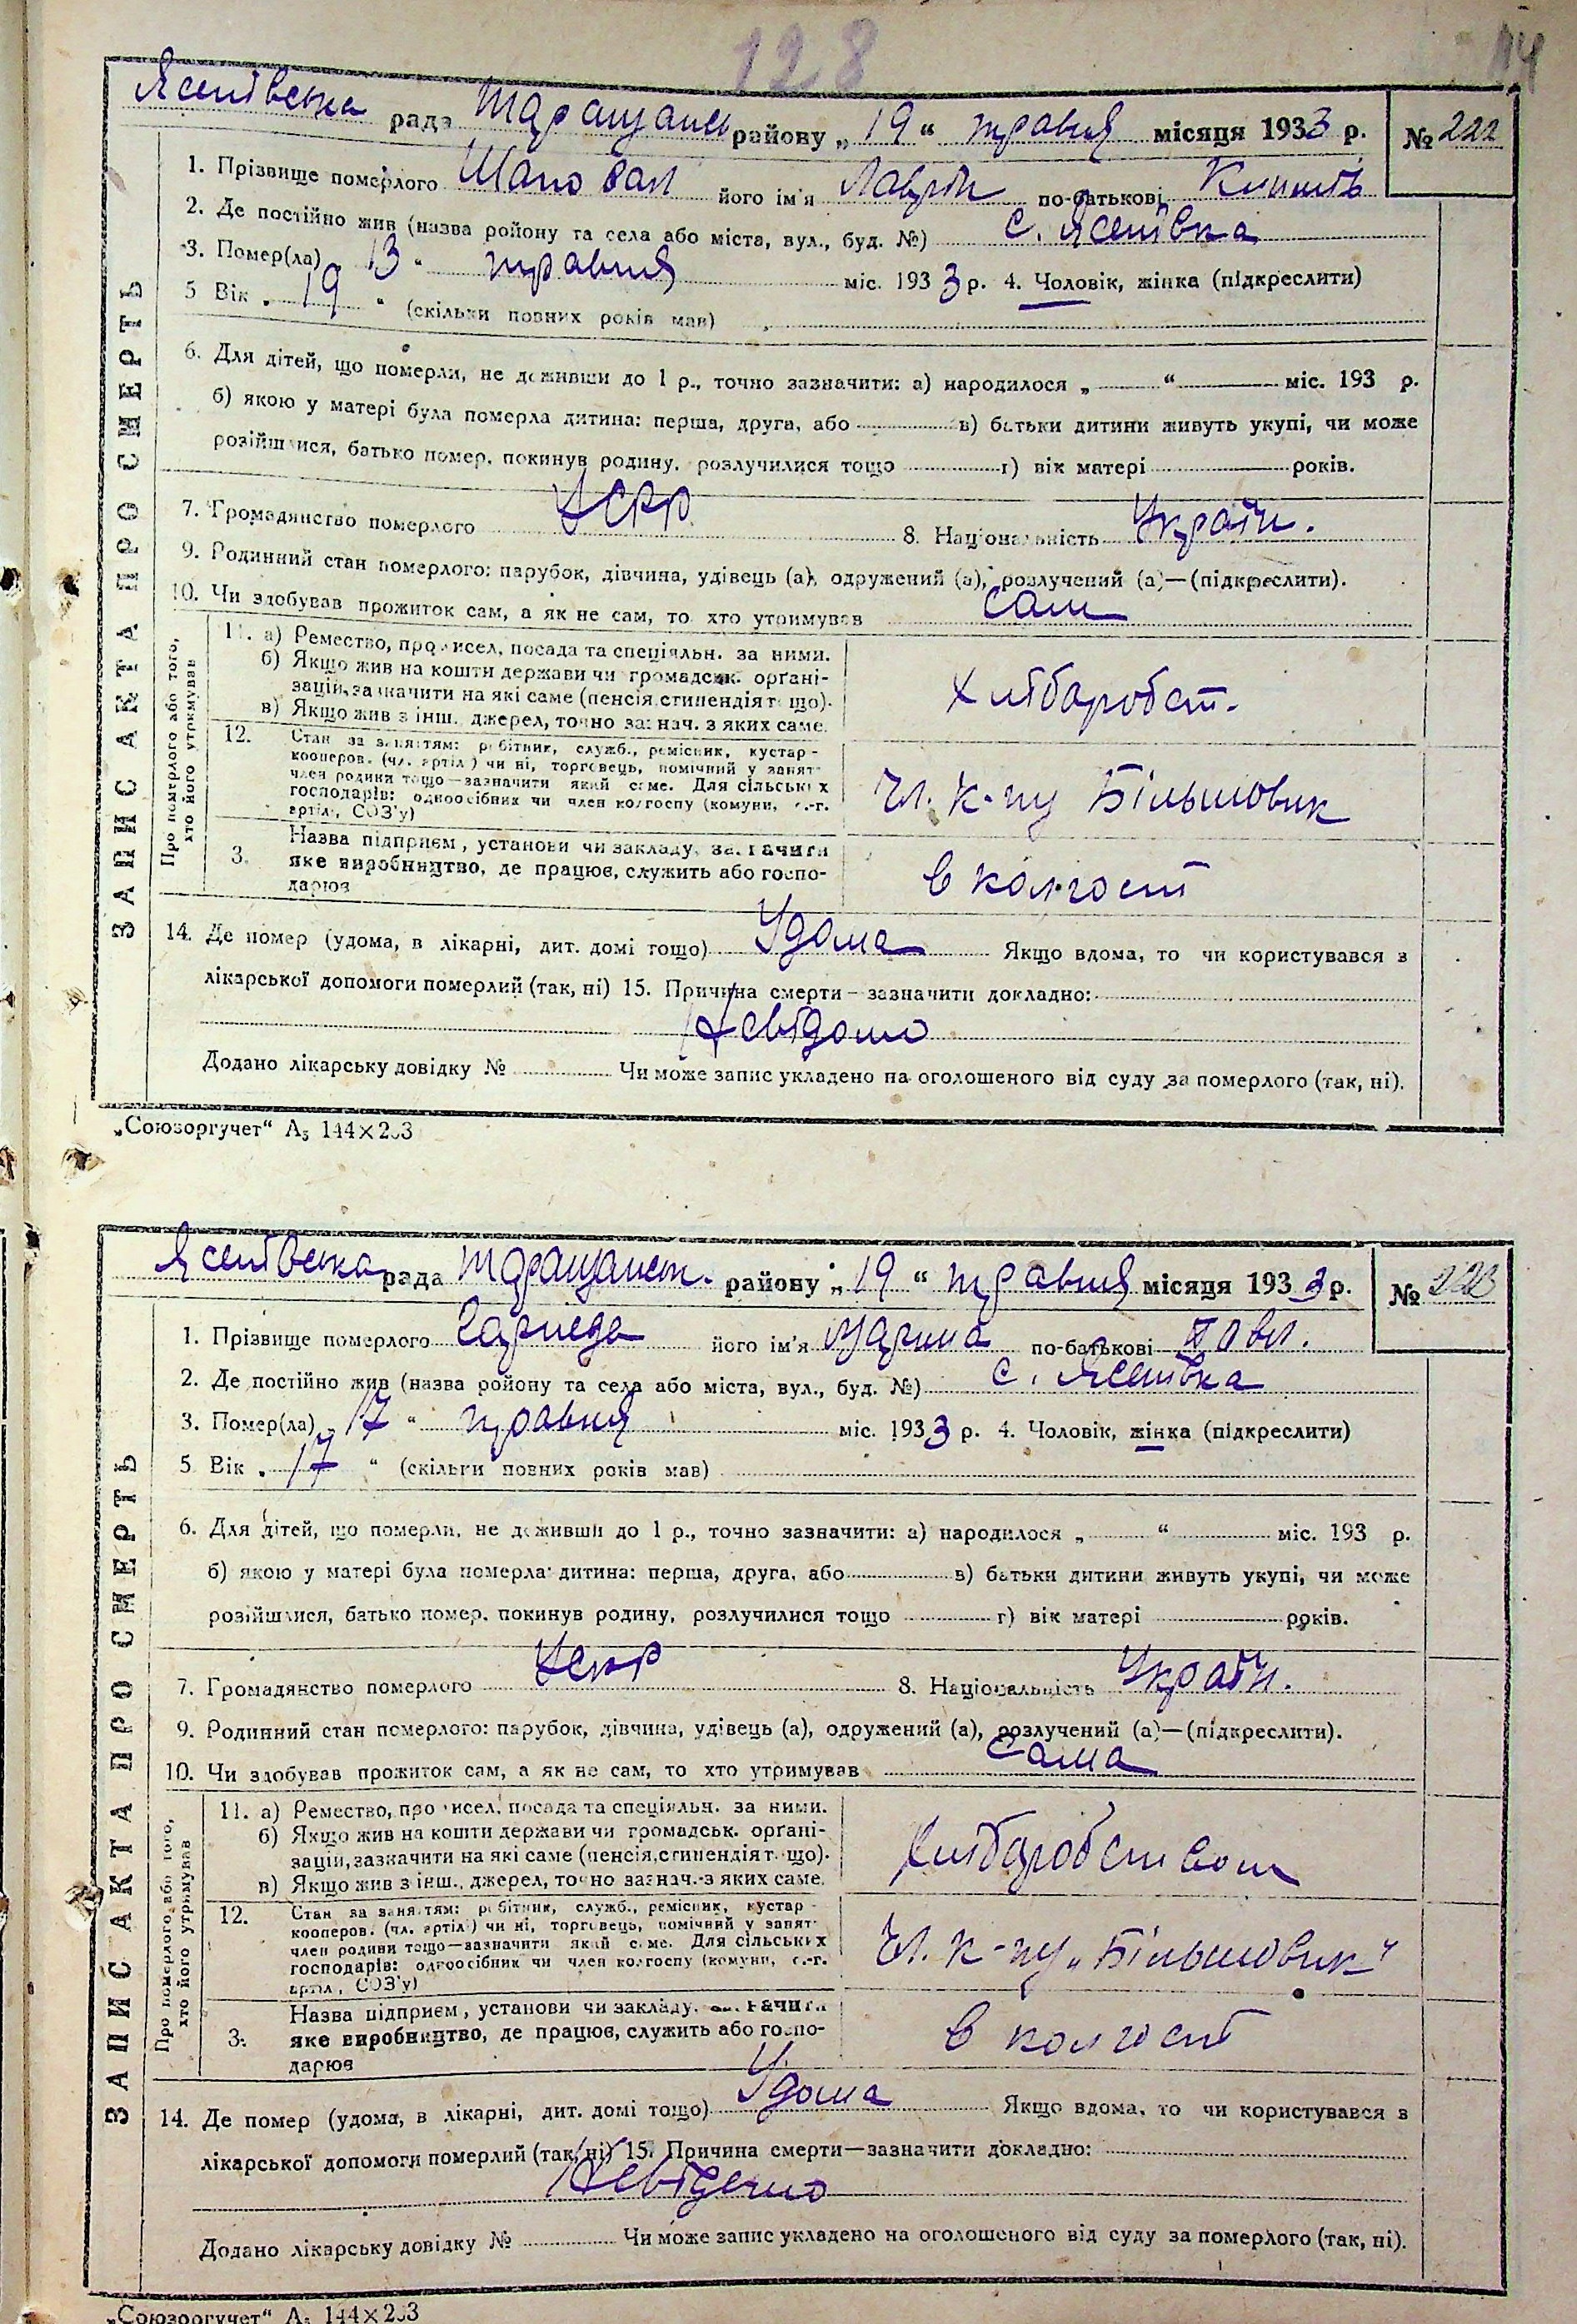 128
114
Ясенівська рада Таращанськ району „19“ травня місяця 1933 р. № 222
ЗАПИС АКТА ПРО СМЕРТЬ
1. Прізвище померлого Шаповал його ім'я Лаврін по-батькові
2. Де постійно жив (назва ройону та села або міста, вул., буд. №) с. Ясенівка
3. Помер(ла) 13 “ травня міс. 1933 р. 4. Чоловік, жінка (підкреслити)
5 Вік „ 19 “ (скільки повних років мав)
6. Для дітей, що померли, не доживши до 1 р., точно зазначити: а) народилося „ “ міс. 193 р.
б) якою у матері була померла дитина: перша, друга, або в) батьки дитини живуть укупі, чи може
розійшлися, батько помер, покинув родину, розлучилися тощо г) вік матері років.
7. Громадянство померлого УСРР 8. Національність Україн.
9. Родинний стан померлого: парубок, дівчина, удівець (а), одружений (а), розлучений (а)—(підкреслити).
10. Чи здобував прожиток сам, а як не сам, то хто утримував сам
Про померлого або того, хто його утримував
11. а) Ремество, промисел, посада та спеціяльн. за ними.
б) Якщо жив на кошти держави чи громадськ. орґані-
зацій, зазначити на які саме (пенсія, стипендія тощо).
в) Якщо жив з інш. джерел, точно зазнач. з яких саме.
Хліборобст.
12. Стан за заняттям: робітник, служб., ремісник, кустар -
кооперов. (чл. артіл.) чи ні, торговець, помічний у занят-
член родини тощо—зазначити який саме. Для сільських
господарів: одноосібник чи член колгоспу (комуни, с.-г.
артіл., СОЗ'у)
Чл. к-пу Більшовик
3. Назва підприєм, установи чи закладу, зазначити
яке виробництво, де працює, служить або госпо-
дарює
в колгоспі
14. Де помер (удома, в лікарні, дит. домі тощо) Удома Якщо вдома, то чи користувався з
лікарської допомоги померлий (так, ні) 15. Причина смерти—зазначити докладно:
Невідомо
Додано лікарську довідку № Чи може запис укладено на оголошеного від суду за померлого (так, ні).
„Союзоргучет“ А₅ 144×203
Ясенівська рада Таращанськ. району „19“ травня місяця 1933 р. № 223
ЗАПИС АКТА ПРО СМЕРТЬ
1. Прізвище померлого його ім'я Марина по-батькові Павл.
2. Де постійно жив (назва ройону та села або міста, вул., буд. №) с. Ясенівка
3. Помер(ла) „ 17 “ травня міс. 1933 р. 4. Чоловік, жінка (підкреслити)
5 Вік „ 17 “ (скільки повних років мав)
6. Для дітей, що померли, не доживши до 1 р., точно зазначити: а) народилося „ “ міс. 193 р.
б) якою у матері була померла дитина: перша, друга, або в) батьки дитини живуть укупі, чи може
розійшлися, батько помер, покинув родину, розлучилися тощо г) вік матері років.
7. Громадянство померлого УСРР 8. Національність Україн.
9. Родинний стан померлого: парубок, дівчина, удівець (а), одружений (а), розлучений (а)—(підкреслити).
10. Чи здобував прожиток сам, а як не сам, то хто утримував Сама
Про померлого або того, хто його утримував
11. а) Ремество, промисел, посада та спеціяльн. за ними.
б) Якщо жив на кошти держави чи громадськ. орґані-
зацій, зазначити на які саме (пенсія, стипендія тощо).
в) Якщо жив з інш. джерел, точно зазнач. з яких саме.
Хліборобством
12. Стан за заняттям: робітник, служб., ремісник, кустар -
кооперов. (чл. артіл.) чи ні, торговець, помічний у занят-
член родини тощо—зазначити який саме. Для сільських
господарів: одноосібник чи член колгоспу (комуни, с.-г.
артіл., СОЗ'у)
Чл. к-пу „Більшовик“
3. Назва підприєм, установи чи закладу, зазначити
яке виробництво, де працює, служить або госпо-
дарює
в колгоспі
14. Де помер (удома, в лікарні, дит. домі тощо) Удома Якщо вдома, то чи користувався з
лікарської допомоги померлий (так, ні) 15. Причина смерти—зазначити докладно:
Додано лікарську довідку № Чи може запис укладено на оголошеного від суду за померлого (так, ні).
„Союзоргучет“ А₅ 144×203